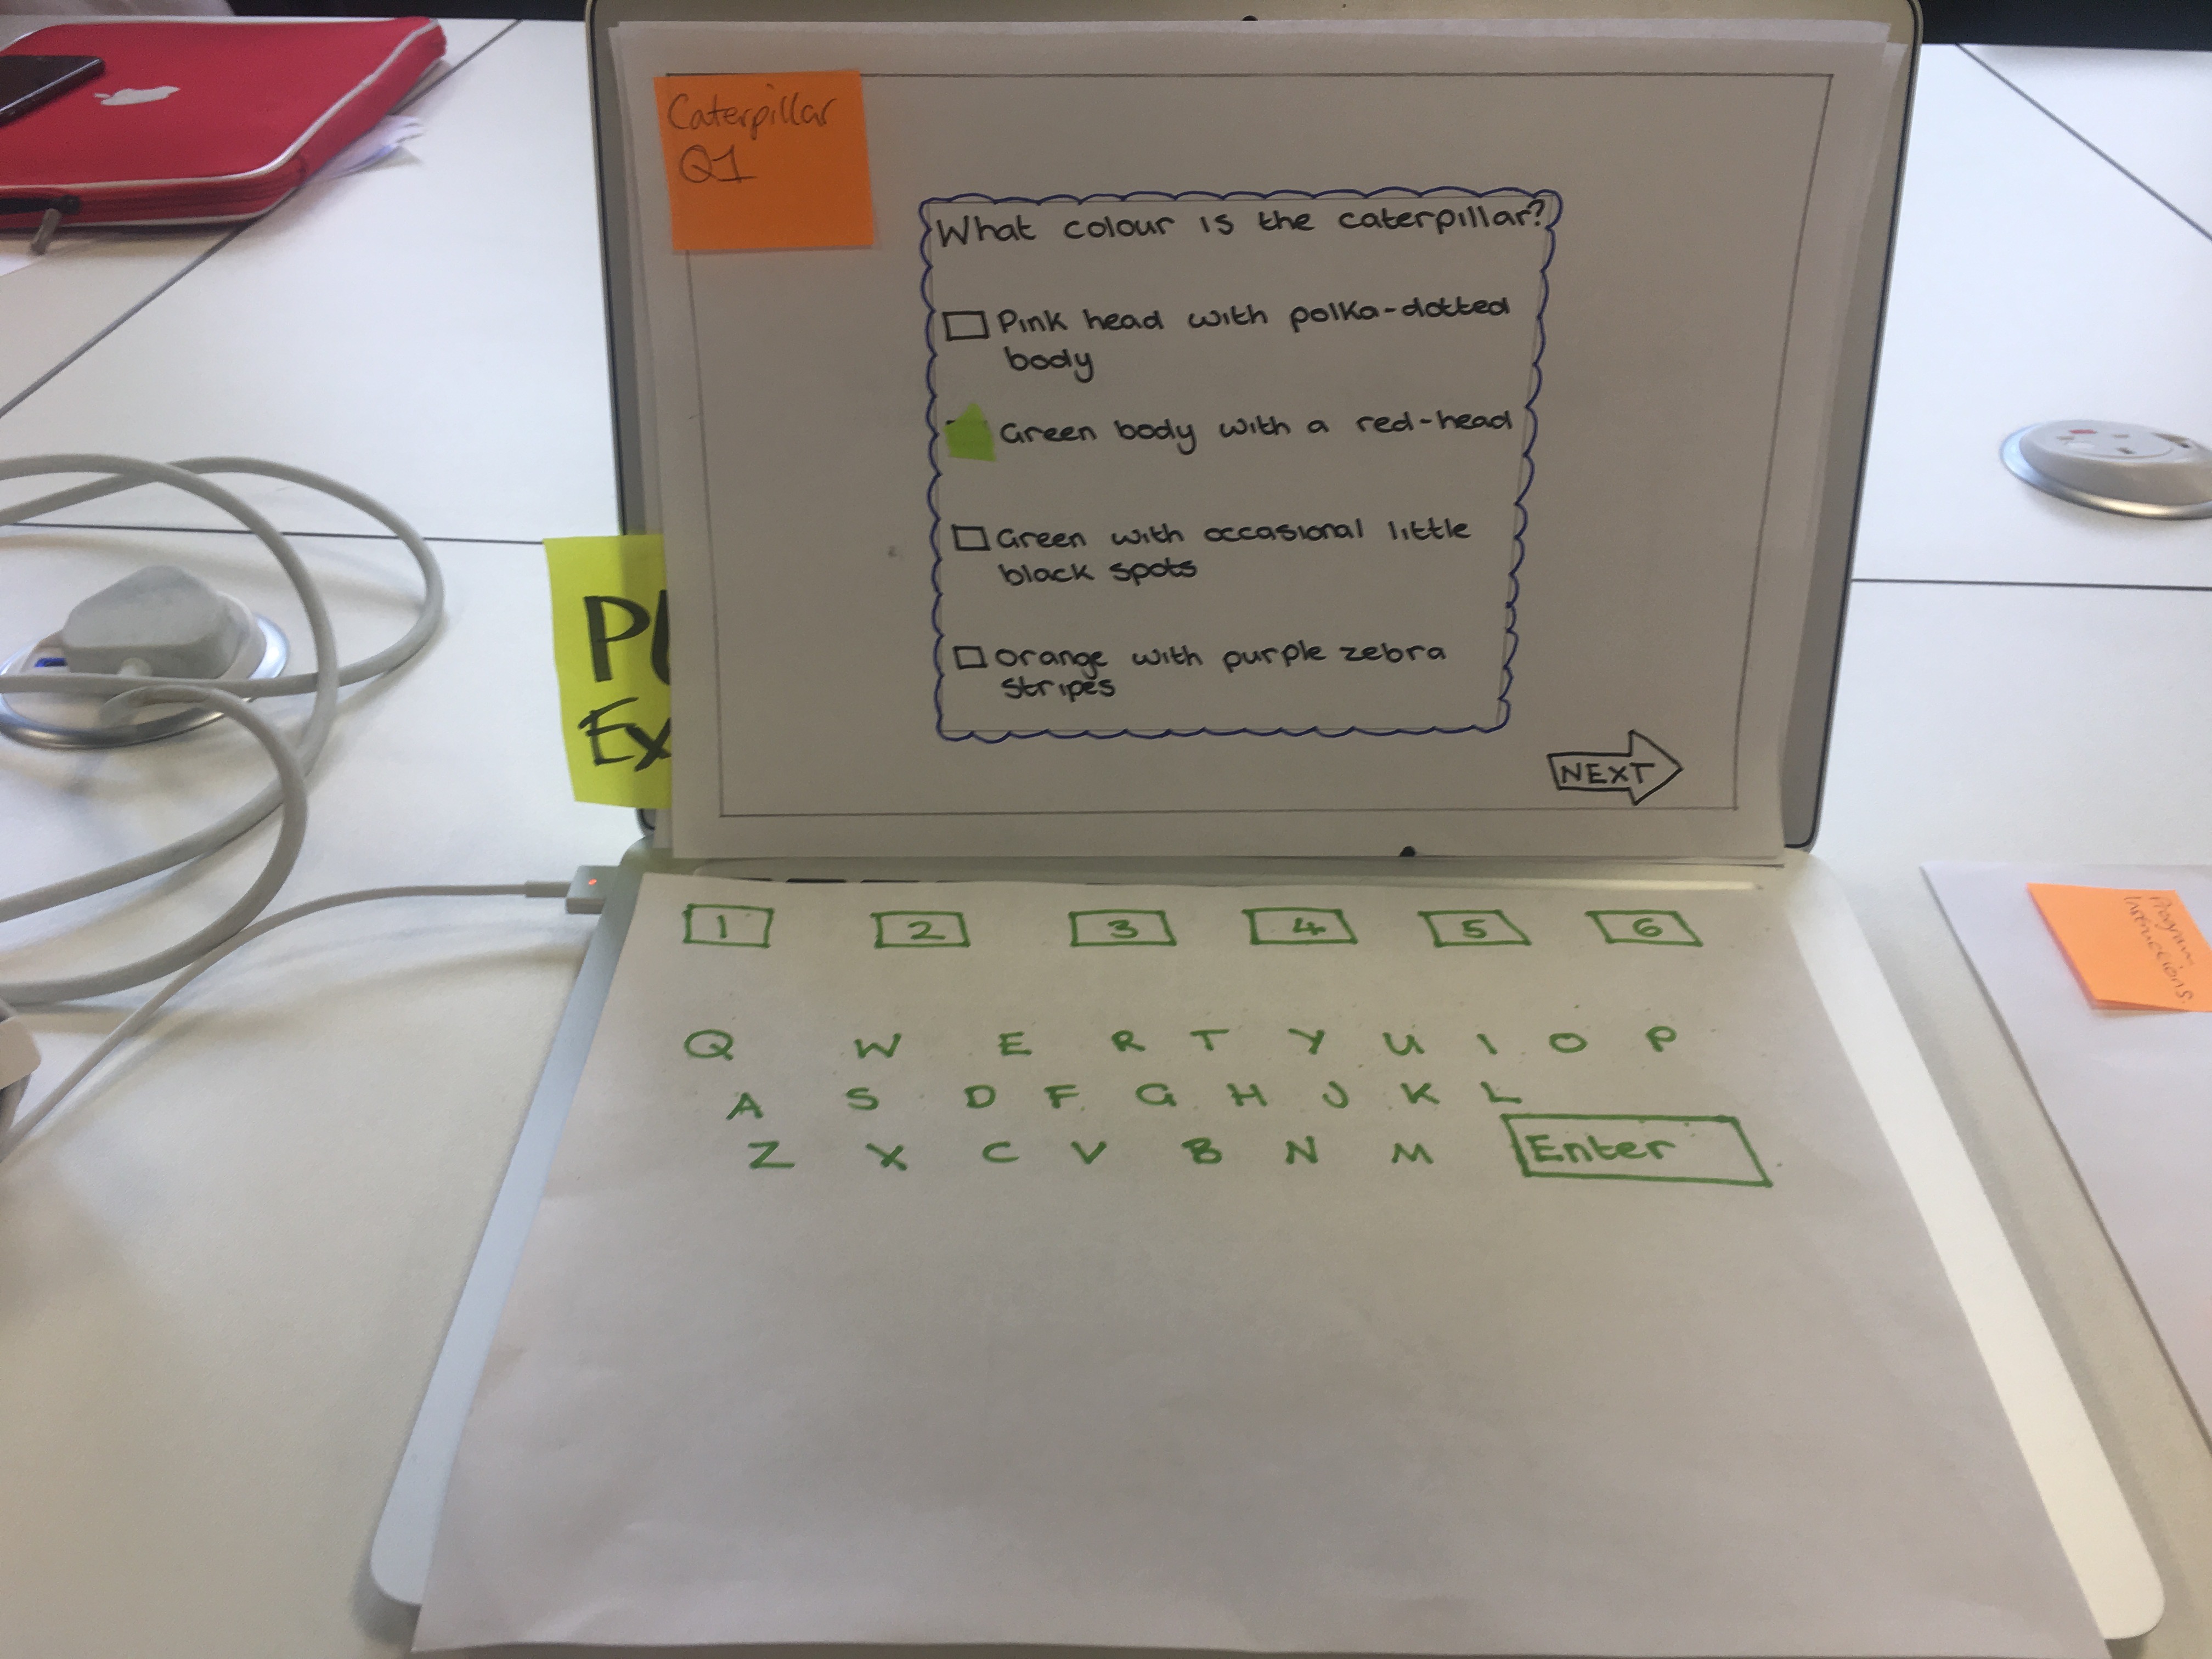 Caterpillar
Q1
What colour is the caterpillar?
Pink head with polka-dotted
body
Green body with a red-head
Green with occasional little
black spots
Orange with purple zebra
stripes
NEXT
PL
Ex
1 2 3 4 5 6
Q W E R T Y U I O P
A S D F G H J K L
Z X C V B N M Enter
Program
Instructions.